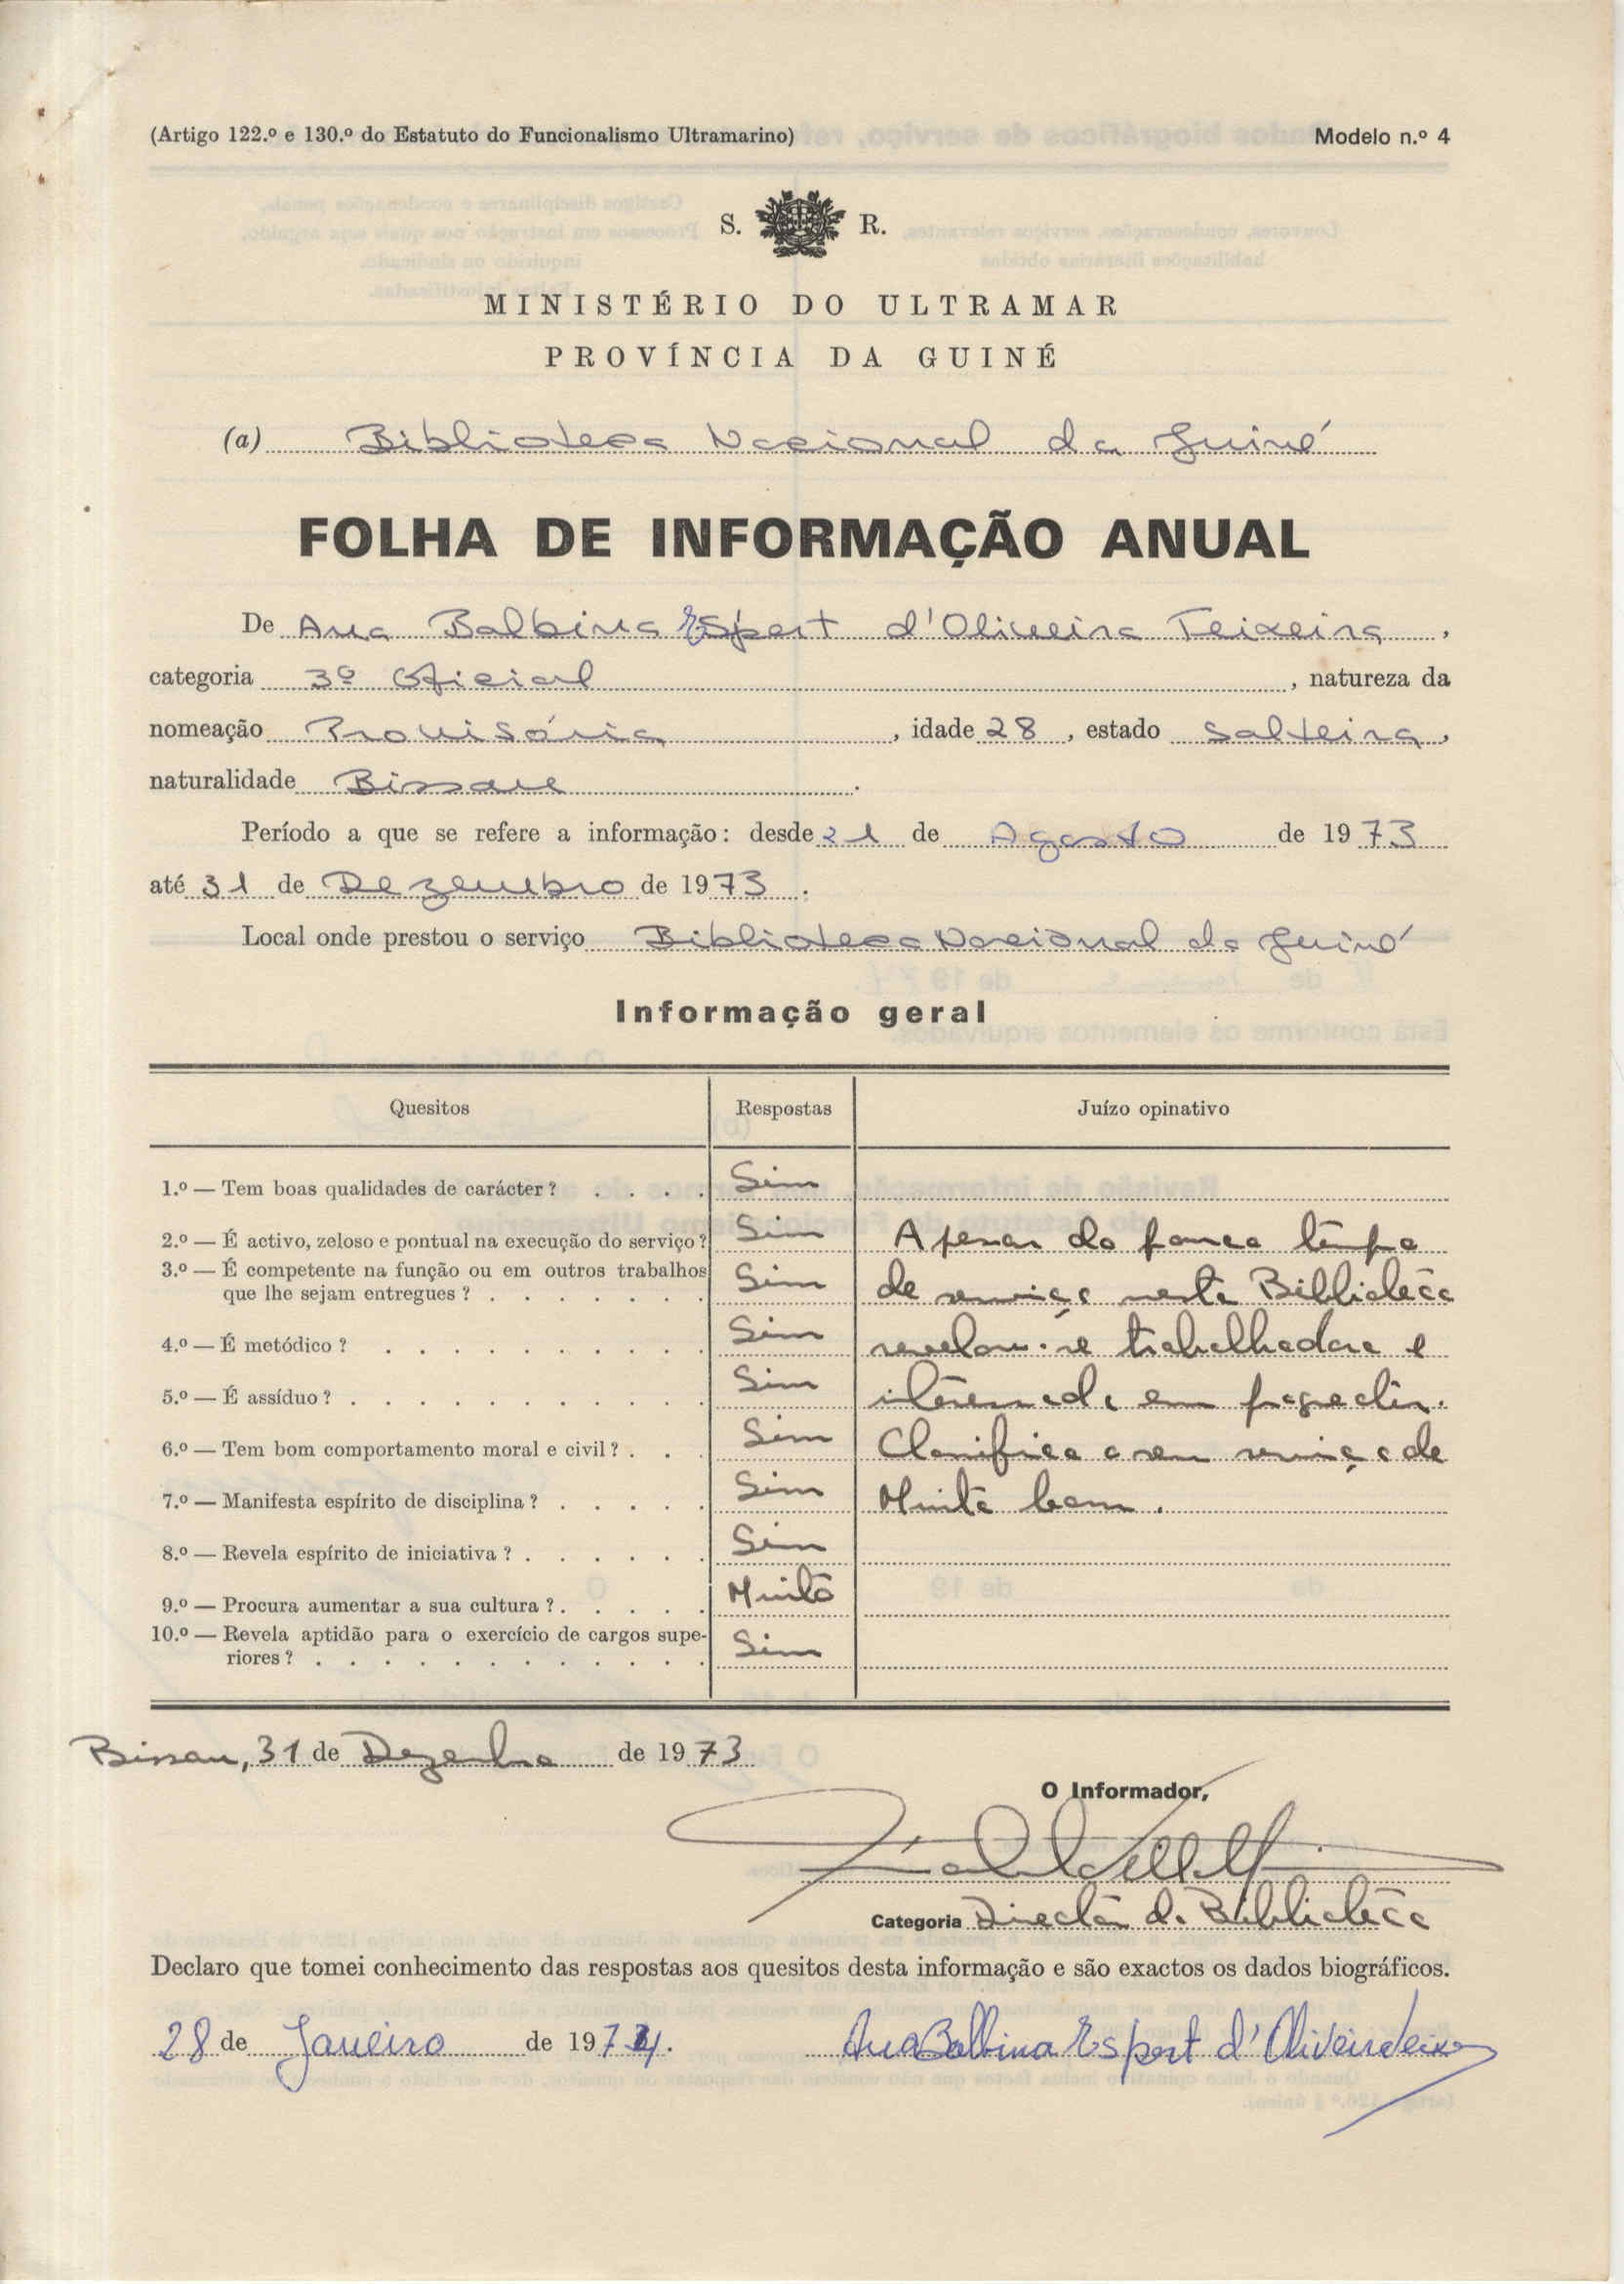 (Artigo 122.º e 130.º do Estatuto do Funcionalismo Ultramarino) Modelo n.º 4
S. R.
MINISTÉRIO DO ULTRAMAR
PROVÍNCIA DA GUINÉ
(a) Biblioteca Nacional da Guiné
FOLHA DE INFORMAÇÃO ANUAL
De Ana Balbina Espert d'Oliveira Teixeira,
categoria 3º Oficial, natureza da
nomeação Provisória, idade 28, estado Solteira,
naturalidade Bissau.
Período a que se refere a informação: desde 21 de Agosto de 1973
até 31 de Dezembro de 1973.
Local onde prestou o serviço Biblioteca Nacional da Guiné
Informação geral
Quesitos Respostas Juízo opinativo
1.º — Tem boas qualidades de carácter? Sim
2.º — É activo, zeloso e pontual na execução do serviço? Sim Apesar do pouco tempo
3.º — É competente na função ou em outros trabalhos
que lhe sejam entregues? Sim de serviço nesta Biblioteca
4.º — É metódico? Sim revelou-se trabalhadora e
5.º — É assíduo? Sim interessada em progredir.
6.º — Tem bom comportamento moral e civil? Sim Classifico o seu serviço de
7.º — Manifesta espírito de disciplina? Sim Muito bom.
8.º — Revela espírito de iniciativa? Sim
9.º — Procura aumentar a sua cultura? Muito
10.º — Revela aptidão para o exercício de cargos supe-
riores? Sim
Bissau, 31 de Dezembro de 1973
O Informador,
Categoria Director da Biblioteca
Declaro que tomei conhecimento das respostas aos quesitos desta informação e são exactos os dados biográficos.
28 de Janeiro de 1974. Ana Balbina Espert d'Oliveira Teixeira